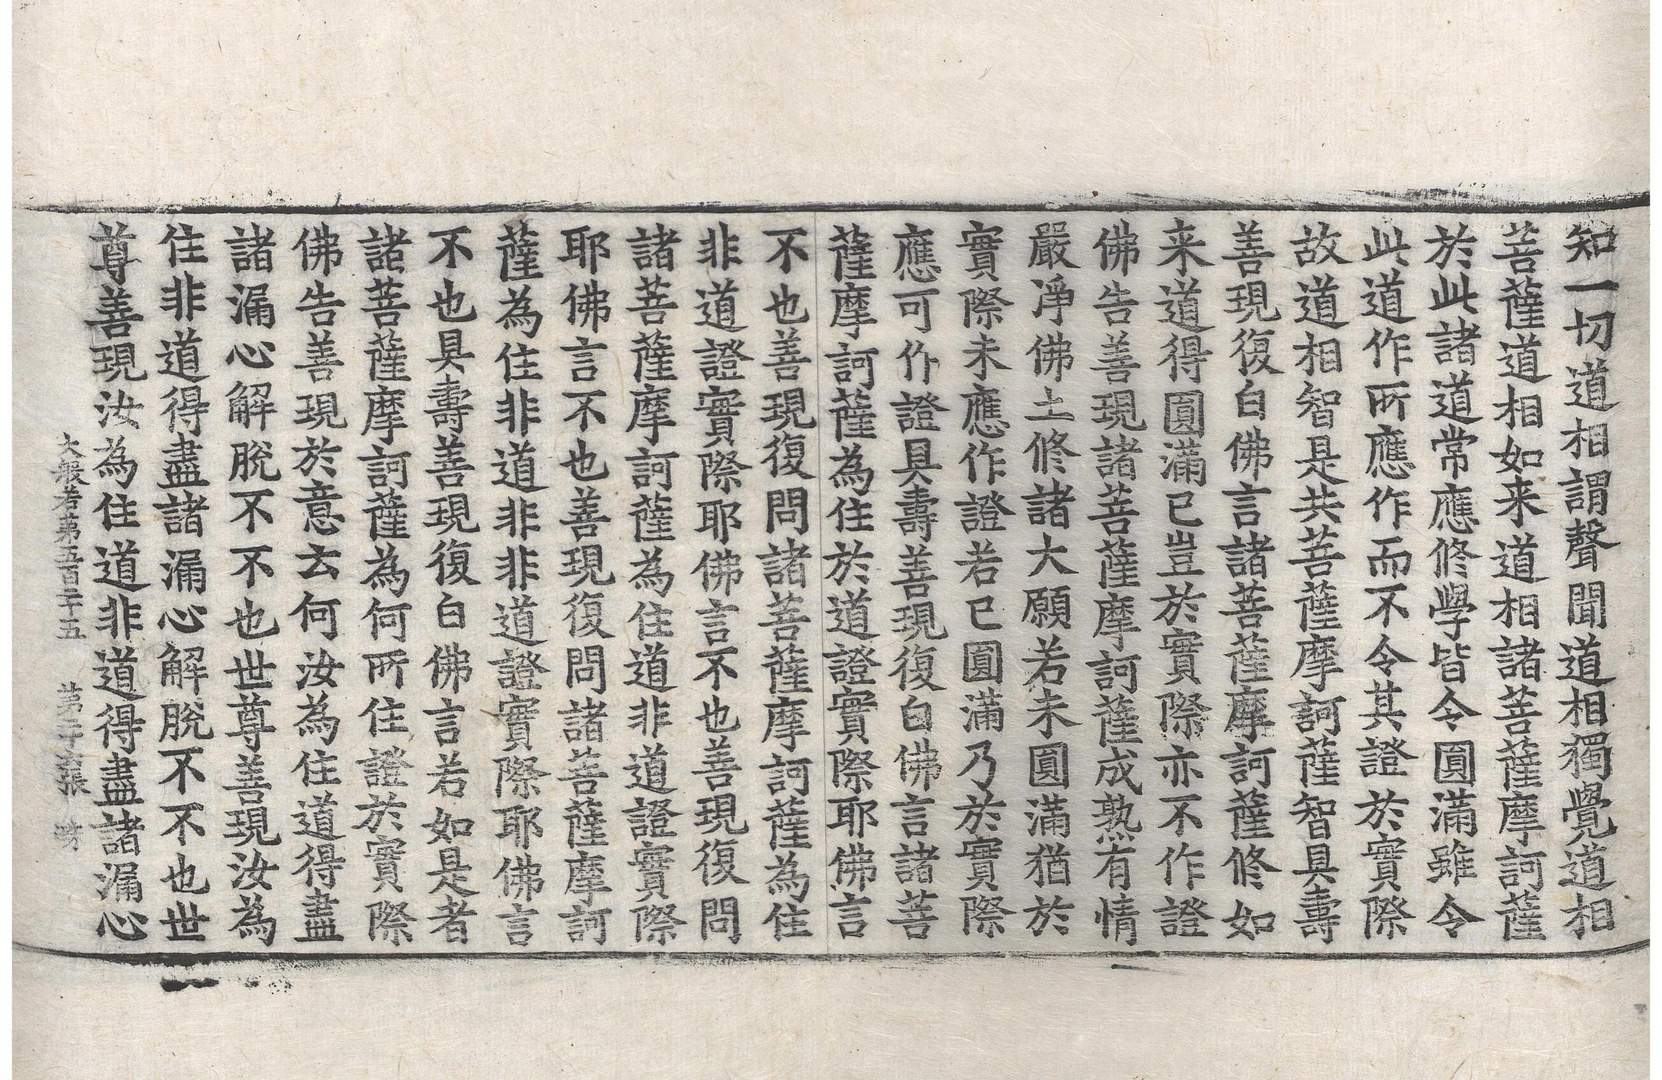 知一切道相謂聲聞道相獨覺道相
菩薩道相如来道相諸菩薩摩訶薩
於此諸道常應修學皆令圓滿雖令
此道作所應作而不令其證於實際
故道相智是共菩薩摩訶薩智具壽
善現復白佛言諸菩薩摩訶薩修如
来道得圓滿已豈於實際亦不作證
佛告善現諸菩薩摩訶薩成熟有情
嚴淨佛土修諸大願若未圓滿猶於
實際未應作證若已圓滿乃於實際
應可作證具壽善現復白佛言諸菩
薩摩訶薩為住於道證實際耶佛言
不也善現復問諸菩薩摩訶薩為住
非道證實際耶佛言不也善現復問
諸菩薩摩訶薩為住道非道證實際
耶佛言不也善現復問諸菩薩摩訶
薩為住非道非非道證實際耶佛言
不也具壽善現復白佛言若如是者
諸菩薩摩訶薩為何所住證於實際
佛告善現於意云何汝為住道得盡
諸漏心解脫不不也世尊善現汝為
住非道得盡諸漏心解脫不不也世
尊善現汝為住道非道得盡諸漏心
大般若第五百二十五　第　張